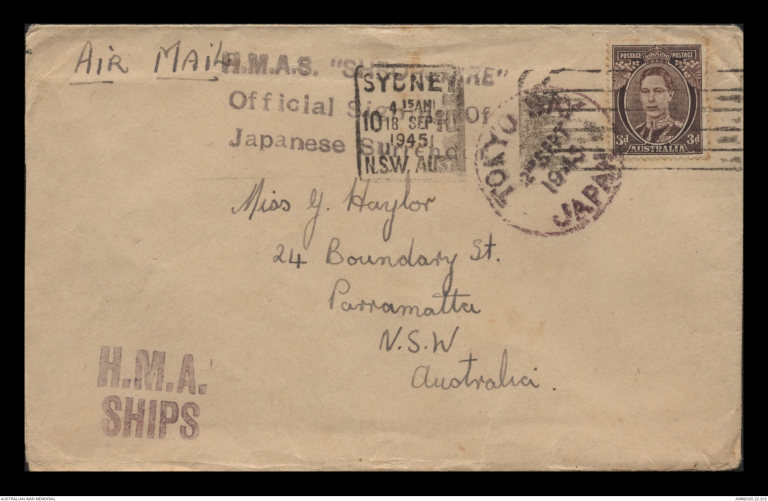 AIR MAIL
H.M.A.S. "SHROPSHIRE"
Official Signing Of
Japanese Surrender
SYDNEY
4 15AM
10 18 SEP 10
1945
N.S.W. AUS
TOKYO BAY
2 SEPT
1945
JAPAN
POSTAGE POSTAGE
3d AUSTRALIA 3d
Miss G. Haylor
24 Boundary St.
Parramatta
N.S.W
Australia.
H.M.A.
SHIPS
AUSTRALIAN WAR MEMORIAL